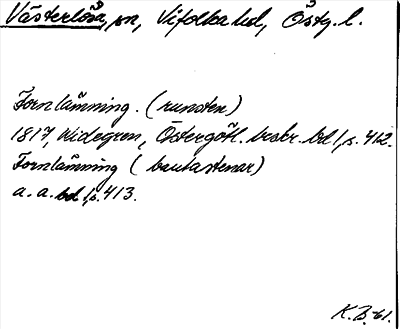 Västerlösa, sn, Vifolka hd, Östg. l.
Fornlämning. (runsten)
1817, Widegren, Östergötl. beskr. bd 1, s. 412.
Fornlämning (bautastenar)
a. a. bd 1, s. 413.
K.B. -61.